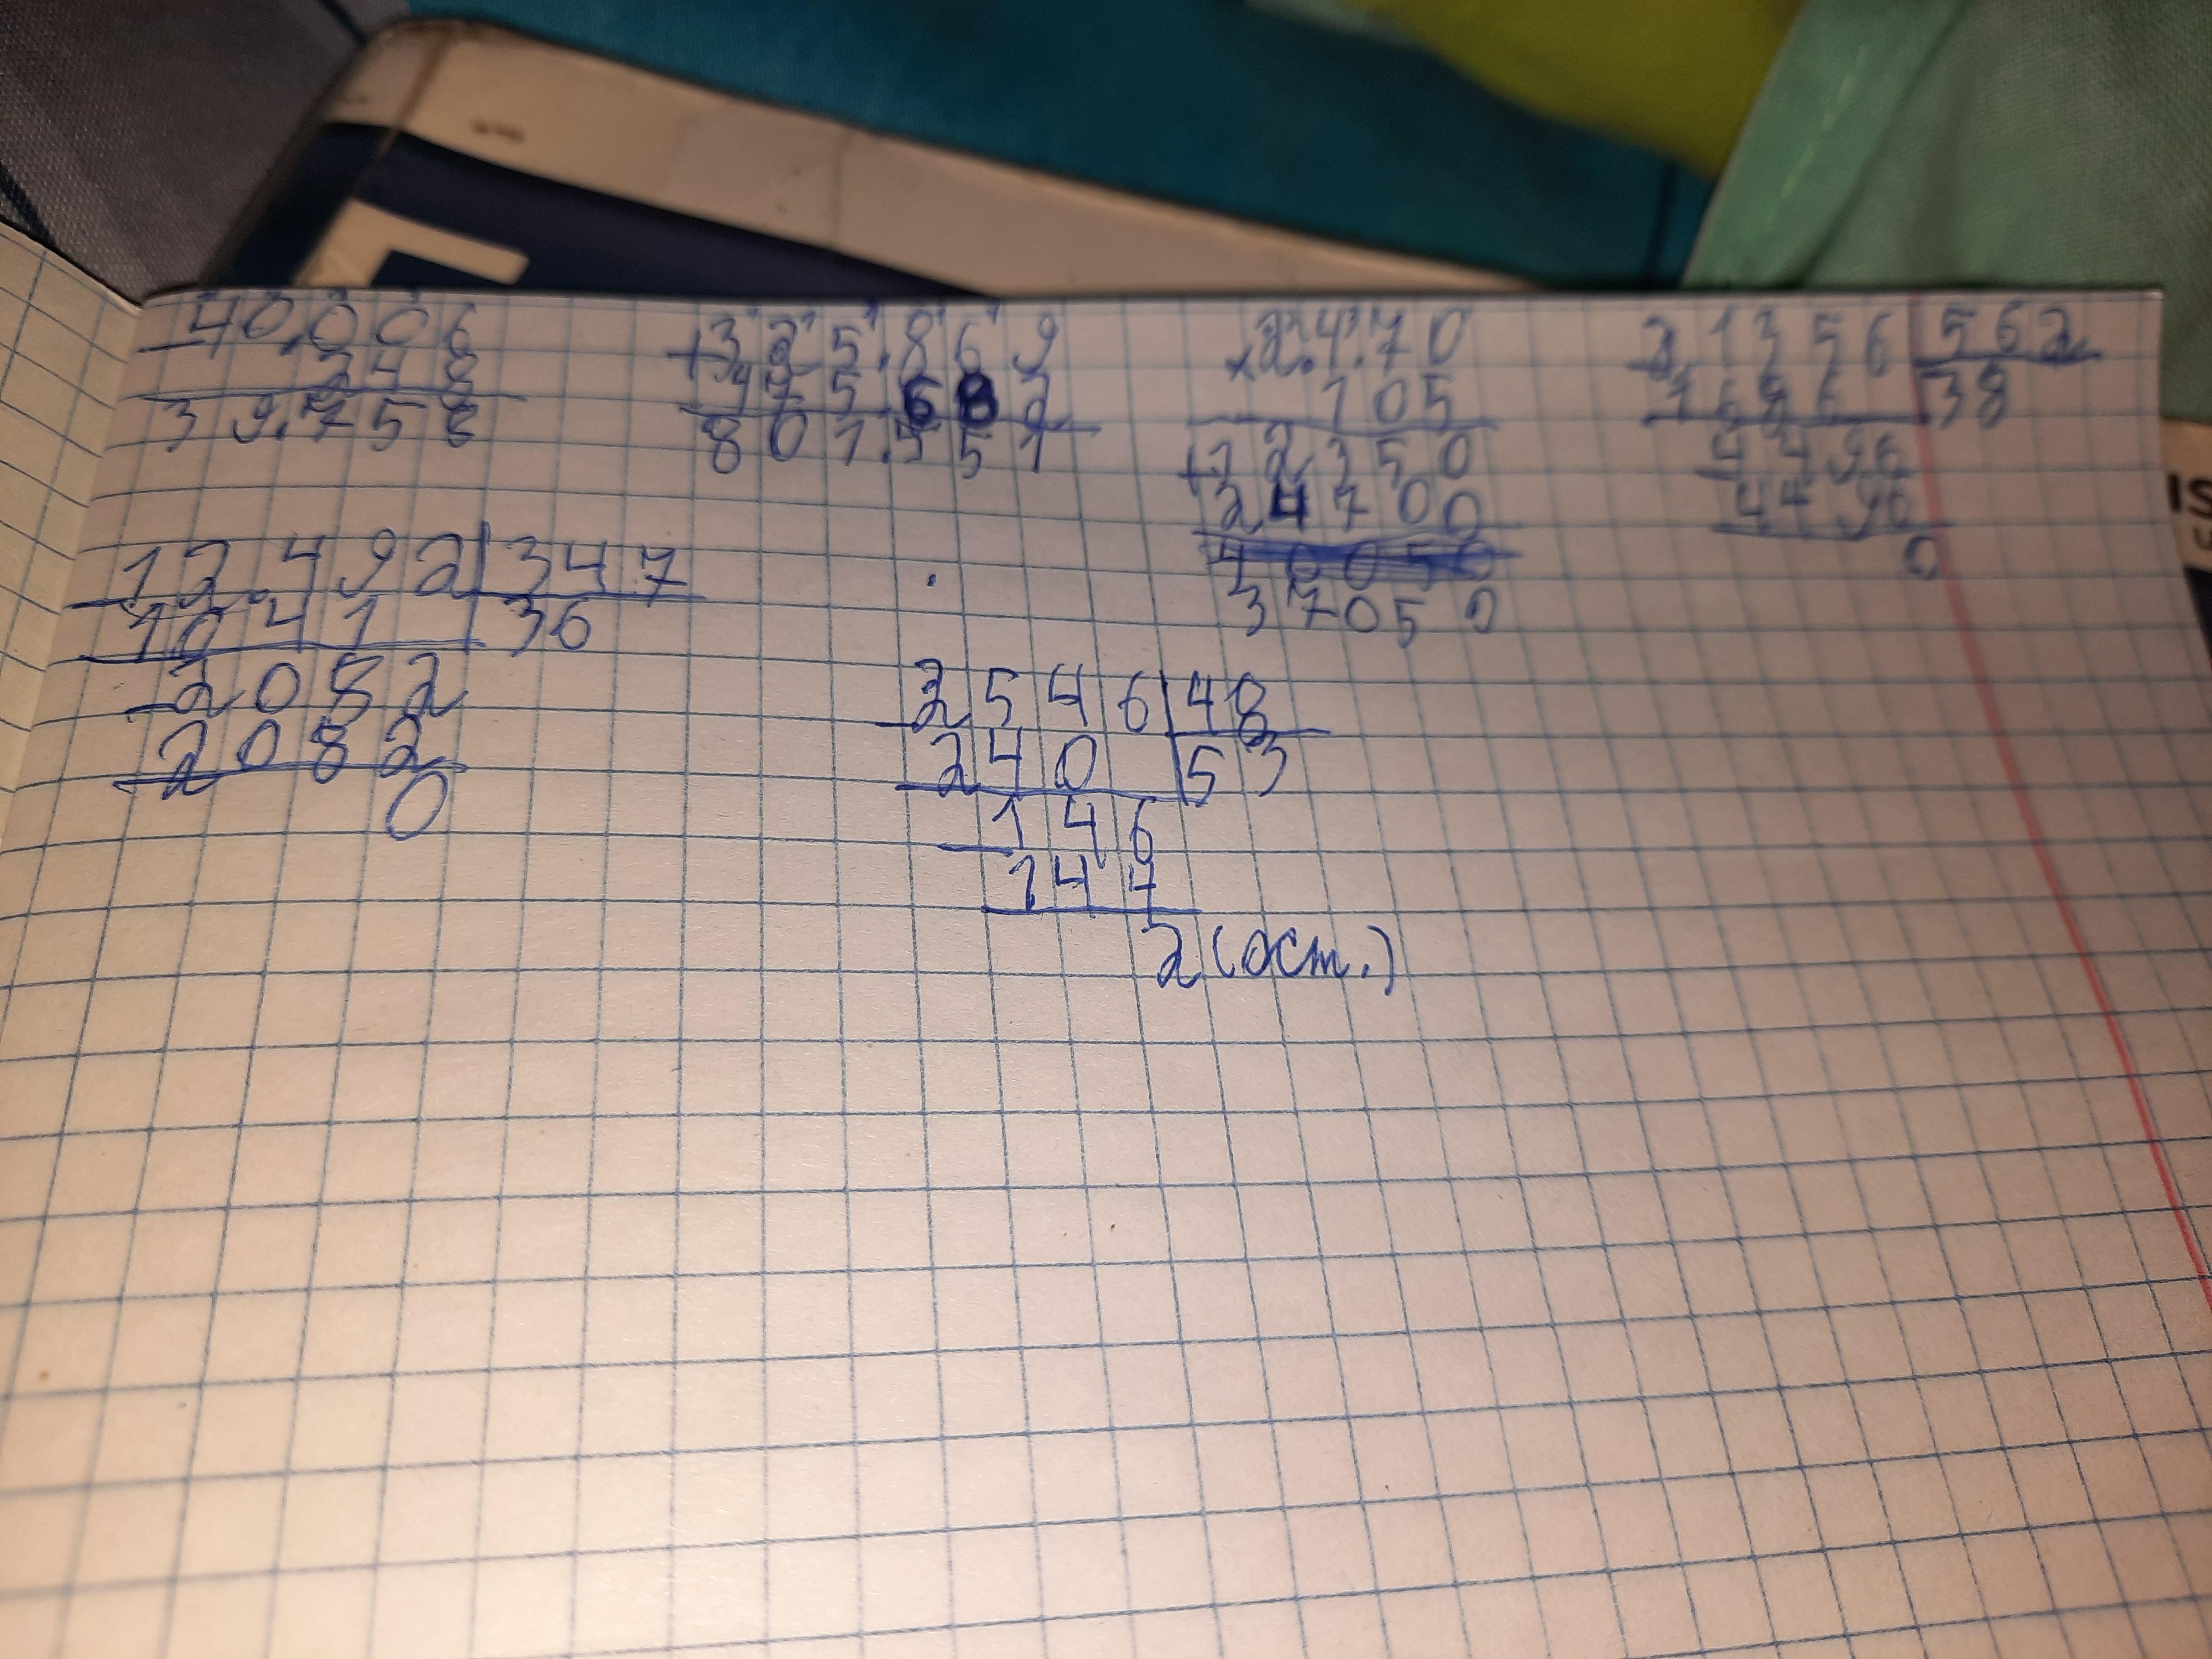 40.006
248
39.758
+325.869
475.682
801.551
×2.4.70
105
+12350
24700
40050
37050
21356 562
1686 38
4496
4496
0
12.492 347
1041 36
2082
2082
0
2546 48
240 53
146
144
2 (ост.)